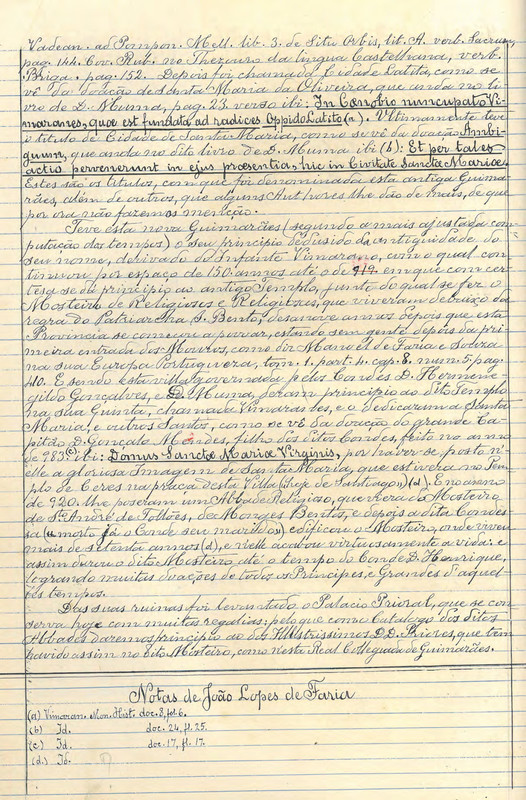 Vadean. ad Pompon. Mell. lib. 3. de Situ Orbis, lit. A. verb. Sacrum,
pag. 144. Cov. Rub. no Thezouro da lingua Castelhana, verb.
Briga. pag. 152. Depois foi chamada Cidade Latita, como se
vê da doação de Santa Maria da Oliveira, que anda no li-
vro de D. Muma, pag. 23. verso ibi: In Cœnobio nuncupato Vi-
maranes, quœ est fundata ad radices Oppido Latito (a). Ultimamente teve
o titulo de Cidade de Santa Maria, como se vê da doação Ambi-
guum, que anda no dito livro de D. Muma ibi (b): Et per tales
actio pervenerunt in ejus prœsentia, hic in Civitate Sanctœ Mariœ.
Estes são os titulos, com que foi denominada esta antiga Guima-
rães, além de outros, que alguns Authores lhe dão de mais, de que
por ora não fazemos menção.
Teve esta nova Guimarães (segundo a mais ajustada com-
putação dos tempos) o seu principio deduzido da antiguidade do
seu nome, derivado do Infante Vimarano, com o qual con-
tinuou por espaço de 150 annos até o de 919. em que com cer-
teza se dá principio ao antigo Templo, junto do qual se fez o
Mosteiro de Religiosos e Religiozas, que viveram debaixo da
regra do Patriarcha S. Bento, desanove annos depois que esta
Provincia se começou a povoar, estando sem gente depois da pri-
meira entrada dos Mouros, como diz Manoel de Faria e Souza
na sua Europa Portugueza, tom. 1. part. 4. cap. 8. num. 5. pag.
410. E sendo esta villa governada pelos Condes D. Hermene-
gildo Gonçalves, e D. Muma, deram principio ao dito Templo
na sua Quinta, chamada Vimaranes, e o dedicaram a Santa
Maria, e outros Santos, como se vê da doação do grande Ca-
pitão D. Gonçalo Mendes, filho dos ditos Condes, feita no anno
de 983. ibi: Domus Sanctœ Mariœ Virginis, por haver-se posto n'
elle a gloriosa Imagem de Santa Maria, que estivera no Tem-
plo de Ceres na praça desta Villa («hoje de Santiago») (c). E no anno
de 920. lhe poseram um Abbade Religioso, que hera do Mosteiro
de St.º André de Telhões, de Monges Bentos, e depois a dita Condes-
sa («morto já o Conde seu marido») edificou o Mosteiro, onde viveu
mais de setenta annos (d), e n'elle acabou virtuosamente a vida: e
assim durou o dito Mosteiro até o tempo do Conde D. Henrique,
logrando muitas doações de todos os Principes, e Grandes d'aquel-
les tempos.
Das suas ruinas foi levantado o Palacio Prioral, que se con-
serva hoje com muitas regalias: pelo que com o Catalogo dos ditos
Abbades daremos principio ao dos Illustrissimos D.D. Priores, que tem
havido assim no dito Mosteiro, como nesta Real Collegiada de Guimarães.
Notas de João Lopes de Faria
(a) Vimaran. Mon. Hist. doc. 8, fol. 6.
(b) Id. doc. 24, fl. 25.
(c) Id. doc. 17, fl. 17.
(d) Id.